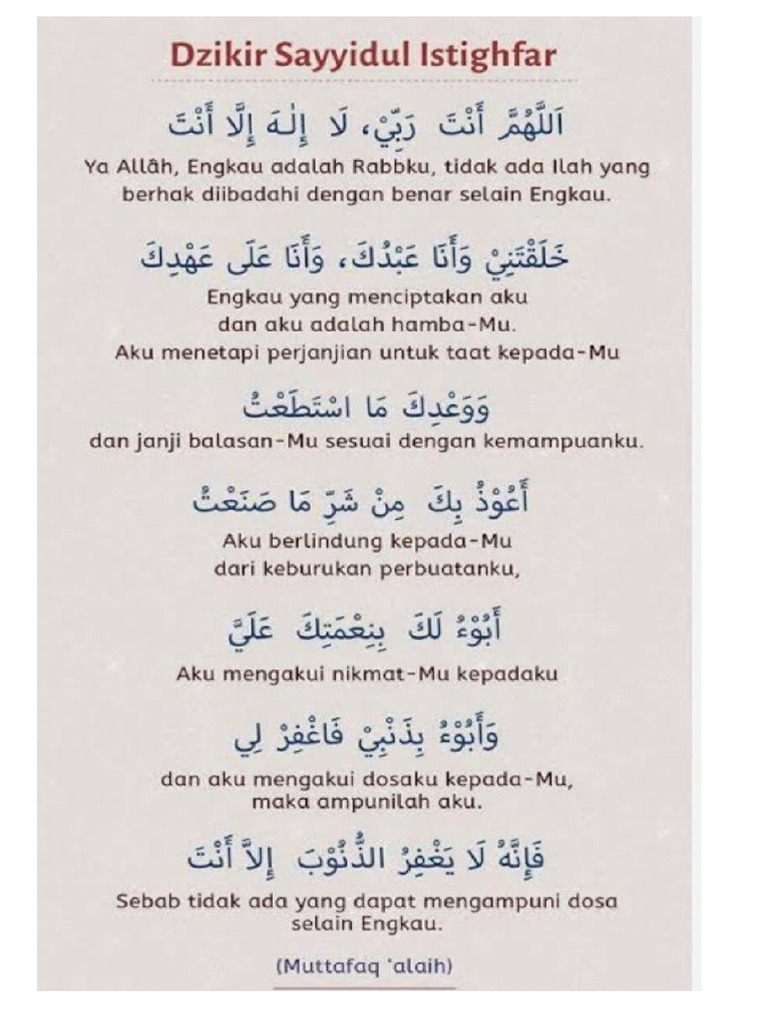 Dzikir Sayyidul Istighfar
اَللَّهُمَّ أَنْتَ رَبِّيْ، لَا إِلٰهَ إِلَّا أَنْتَ
Ya Allâh, Engkau adalah Rabbku, tidak ada Ilah yang
berhak diibadahi dengan benar selain Engkau.
خَلَقْتَنِيْ وَأَنَا عَبْدُكَ، وَأَنَا عَلَى عَهْدِكَ
Engkau yang menciptakan aku
dan aku adalah hamba-Mu.
Aku menetapi perjanjian untuk taat kepada-Mu
وَوَعْدِكَ مَا اسْتَطَعْتُ
dan janji balasan-Mu sesuai dengan kemampuanku.
أَعُوْذُ بِكَ مِنْ شَرِّ مَا صَنَعْتُ
Aku berlindung kepada-Mu
dari keburukan perbuatanku,
أَبُوْءُ لَكَ بِنِعْمَتِكَ عَلَيَّ
Aku mengakui nikmat-Mu kepadaku
وَأَبُوْءُ بِذَنْبِيْ فَاغْفِرْ لِي
dan aku mengakui dosaku kepada-Mu,
maka ampunilah aku.
فَإِنَّهُ لَا يَغْفِرُ الذُّنُوْبَ إِلاَّ أَنْتَ
Sebab tidak ada yang dapat mengampuni dosa
selain Engkau.
(Muttafaq ‘alaih)